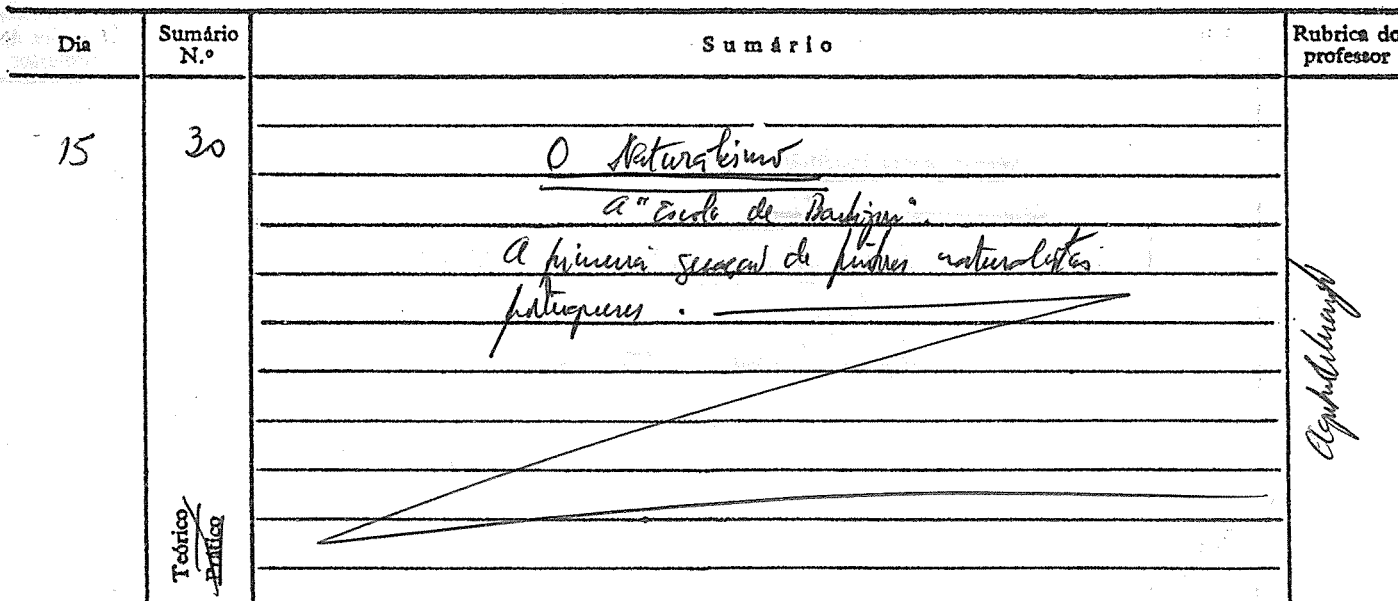 Dia
Sumário N.º
Sumário
Rubrica do professor
15
30
O Naturalismo
A "Escola de Barbizon".
A primeira geração de pintores naturalistas
portugueses.
Teórico
Prático